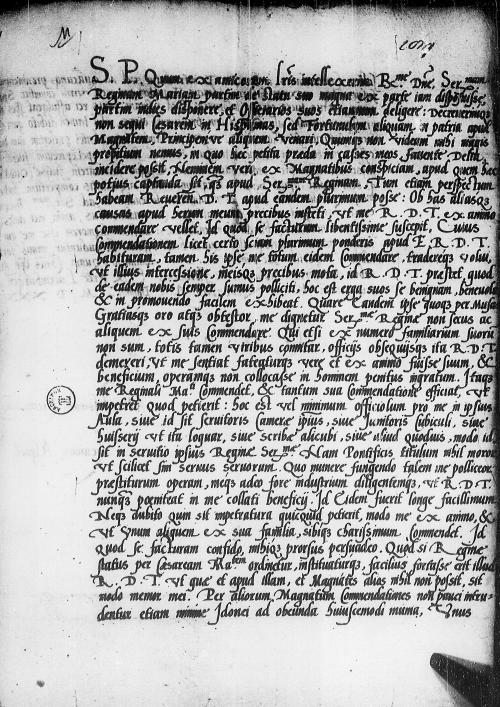 S. P. Quum ex amicorum lris intellexerim R.me Dne Ser.mam
Reginam Mariam partim de statu suo magna ex parte iam disposuisse,
partim indies disponere, et Officiarios suos etiamnum deligere: Decreverimq
non sequi Cesarem in Hispanias, sed Fortunulam aliquam in patria apud
Magnatem, Principemve aliquem venari, Quumq non videam mihi magis
propitium nemus, in quo hec petita præda in casses meos, favente Delia,
incidere possit, Neminem vero ex Magnatibus conspiciam, apud quem hec
potius captanda sit, q apud Ser.mam Reginam. Tum etiam perspectum
habeam Reveren. D. T. apud eandem plurimum posse: Ob has aliasq
causas apud herum meum precibus institi, vt me R. D. T. ex animo
commendare vellet, Id quod se facturum libentissime suscepit, Cuius
commendationem licet certo sciam plurimum ponderis apud E. R. D. T.
habituram, tamen his ipse me totum eidem commendare, tradereq volui,
vt illius intercessione, meisq precibus mota, id R. D. T. præstet, quod
de eadem nobis semper sumus polliciti, hoc est erga suos se benignam, benevola
& in promovendo facilem exhibeat. Quare Eandem ipse quoq per Musas
Gratiasq oro atq obtestor, me dignetur Ser.mae Reginæ non secus ac
aliquem ex suis commendare Qui etsi ex numero familiarium suorum
non sum, totis tamen viribus connitar, officijs obsequijsq ita R. D. T.
demereri, vt me sentiat fateaturq vere et ex animo fuisse suum, &
beneficium, operamq non collocasse in hominem penitus ingratum. Itaq
me Reginali Ma.ti commendet, & tantum sua commendatione efficiat, vt
impetret quod petierit: hoc est vel minimum officiolum pro me in ipsius
Aula, sive id sit servitoris cameræ ipius, sive Janitoris cubiculi, sive
huisserij vt ita loquar, sive scribæ alicubi, sive aliud quodvis, modo id
sit in servitio ipsius Reginæ Ser.mae Nam Pontificis titulum nihil moror
vt scilicet sim servus servorum. Quo munere fungendo talem me polliceor
præstiturum operam, meq adeo fore industrium diligentemq, vt R. D. T.
nunq poeniteat in me collati beneficij. Id Eidem fuerit longe facillimum
Neq dubito quin sit impetratura quicquid petierit, modo me ex animo, &
vt Vnum aliquem ex sua familia, sibiq charissimum commendet. Id
quod se facturam confido, mihiq prorsus persuadeo. Quod si Reginæ
status per Cæsaream Ma.tem ordinetur, instituaturq, facilius fortasse erit illud
R. D. T. vt quæ et apud illam, et Magnates alios nihil non possit, sit
modo memor mei. Per aliorum Magnatum commendationes non pauci intru-
dentur etiam minime Idonei ad obeunda huiuscemodi munia, Vnus